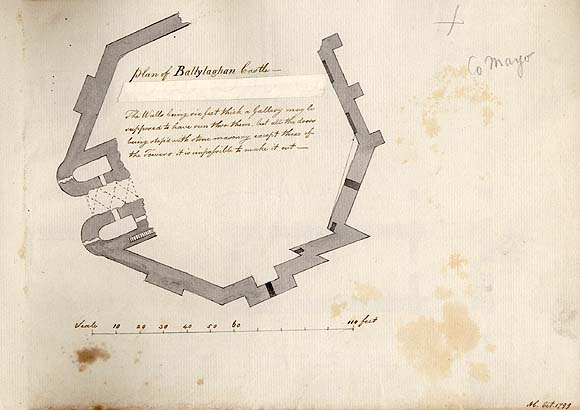 Plan of Ballylaghan Castle —
The Walls being six feet thick a Gallery may be
supposed to have run thro' them, but all the doors
being stop'd with stone masonry except those of
the Towers, it is impossible to make it out —
Co Mayo
Scale 10 20 30 40 50 60 100 feet
Oct. 1799